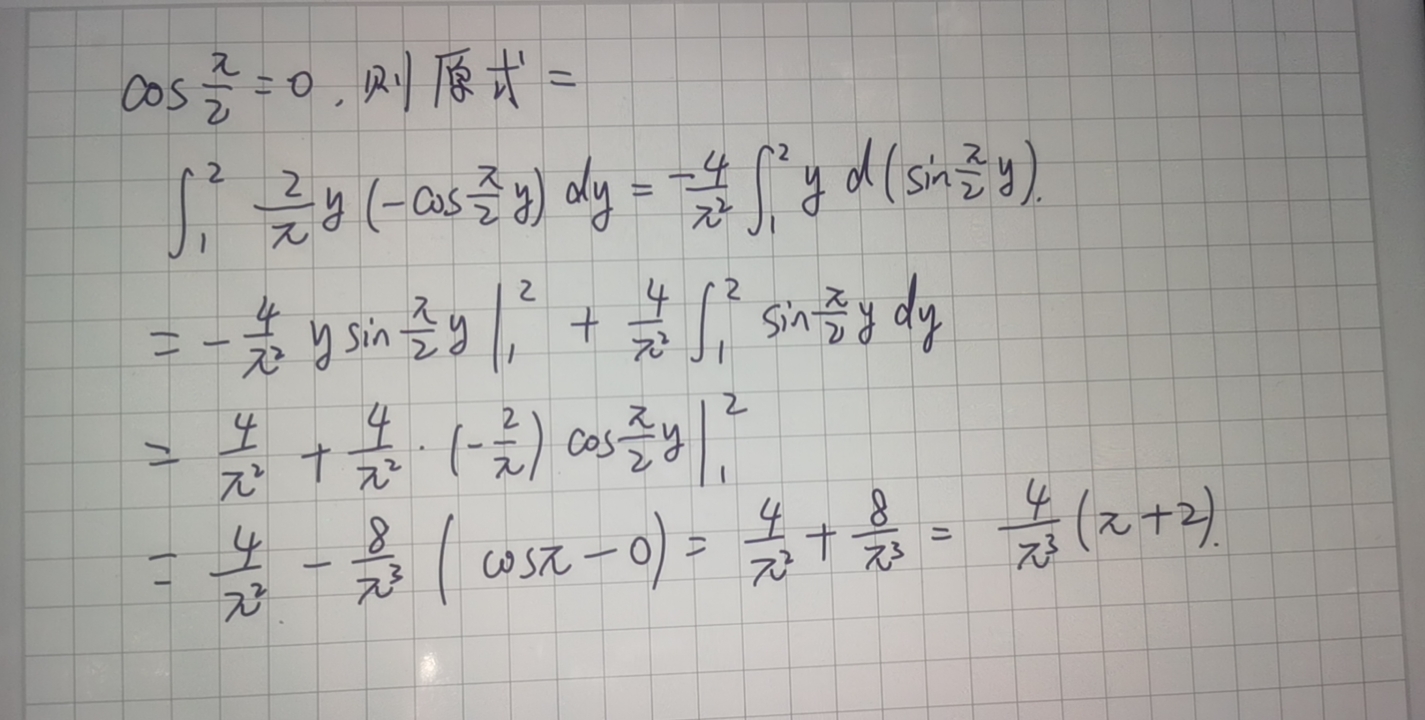 cos π/2 = 0, 则原式 =
∫₁² 2/π y (-cos π/2 y) dy = -4/π² ∫₁² y d(sin π/2 y).
= -4/π² y sin π/2 y |₁² + 4/π² ∫₁² sin π/2 y dy
= 4/π² + 4/π² · (-2/π) cos π/2 y |₁²
= 4/π² - 8/π³ (cosπ - 0) = 4/π² + 8/π³ = 4/π³ (π+2).